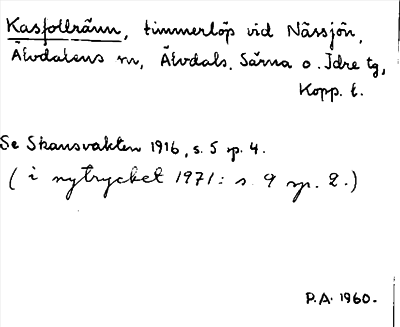 Kasfallränn, timmerlöp vid Nässjön,
Älvdalens sn, Älvdals, Särna o. Idre tg,
Kopp. l.
Se Skansvakten 1916, s. 5 sp. 4.
(i nytrycket 1971: s. 9 sp. 2.)
P.A. 1960.